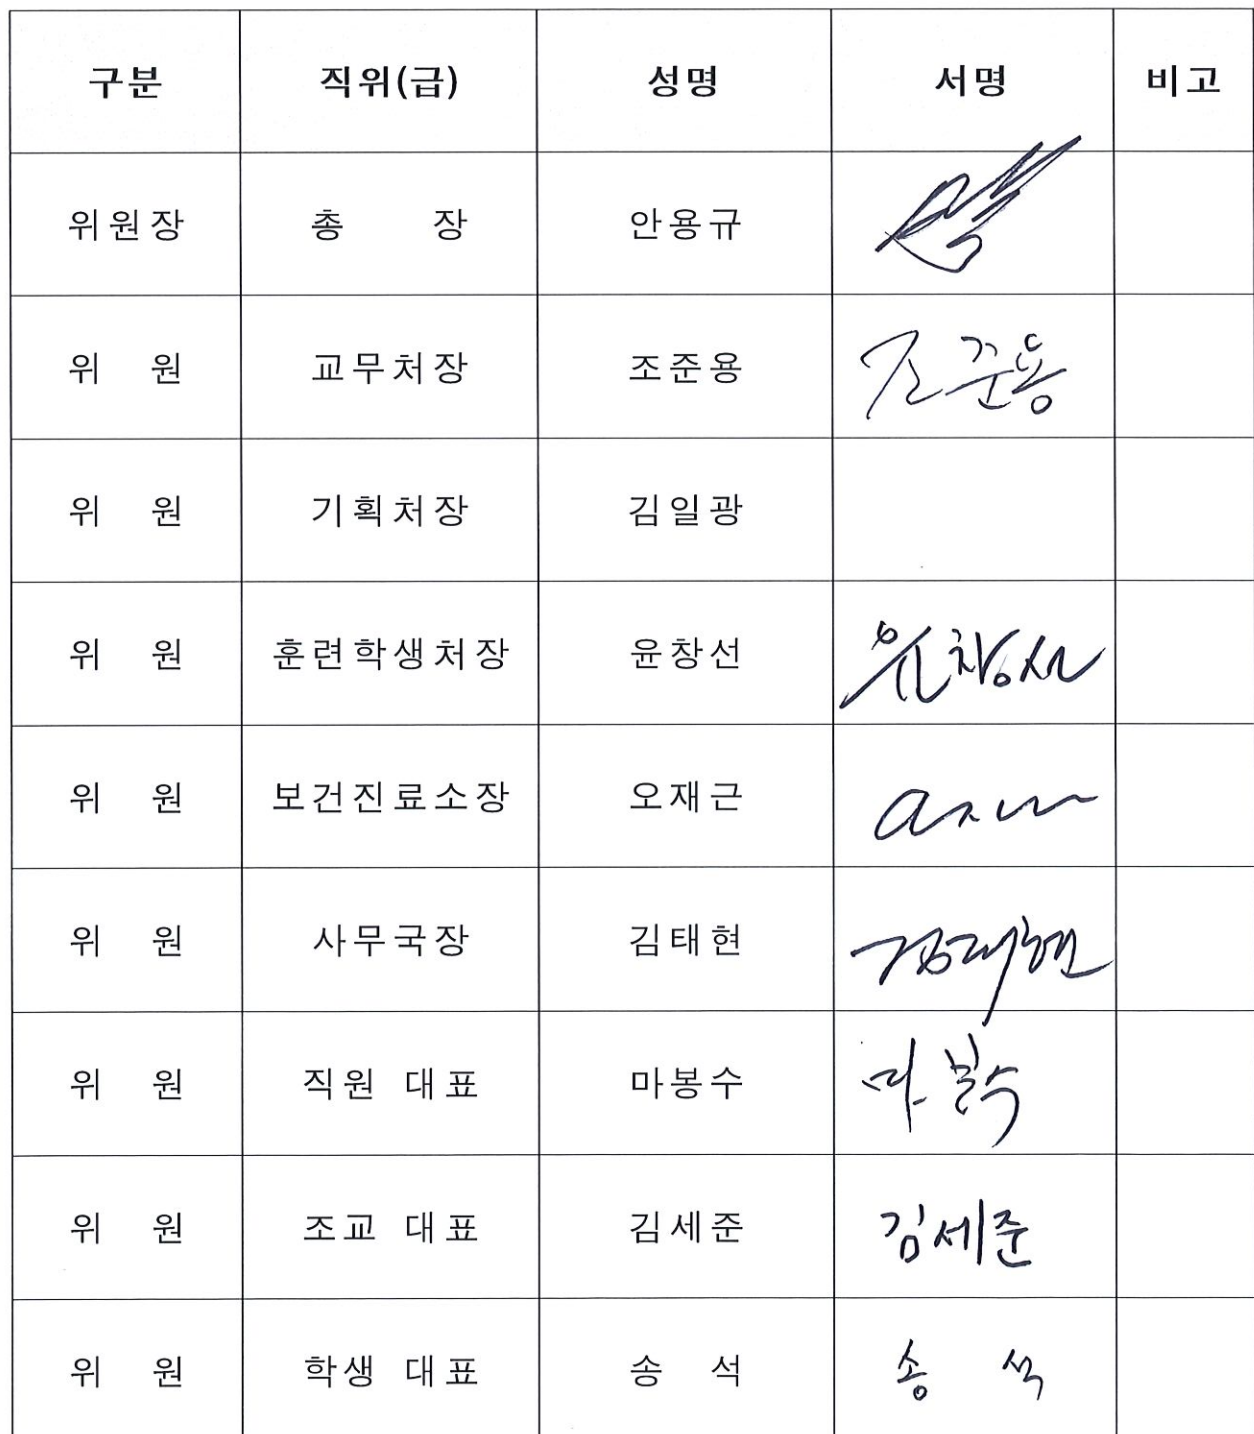 구분 직위(급) 성명 서명 비고
위원장 총 장 안용규
위 원 교무처장 조준용 조준용
위 원 기획처장 김일광
위 원 훈련학생처장 윤창선 윤창선
위 원 보건진료소장 오재근
위 원 사무국장 김태현 김태현
위 원 직원 대표 마봉수 마봉수
위 원 조교 대표 김세준 김세준
위 원 학생 대표 송 석 송 석